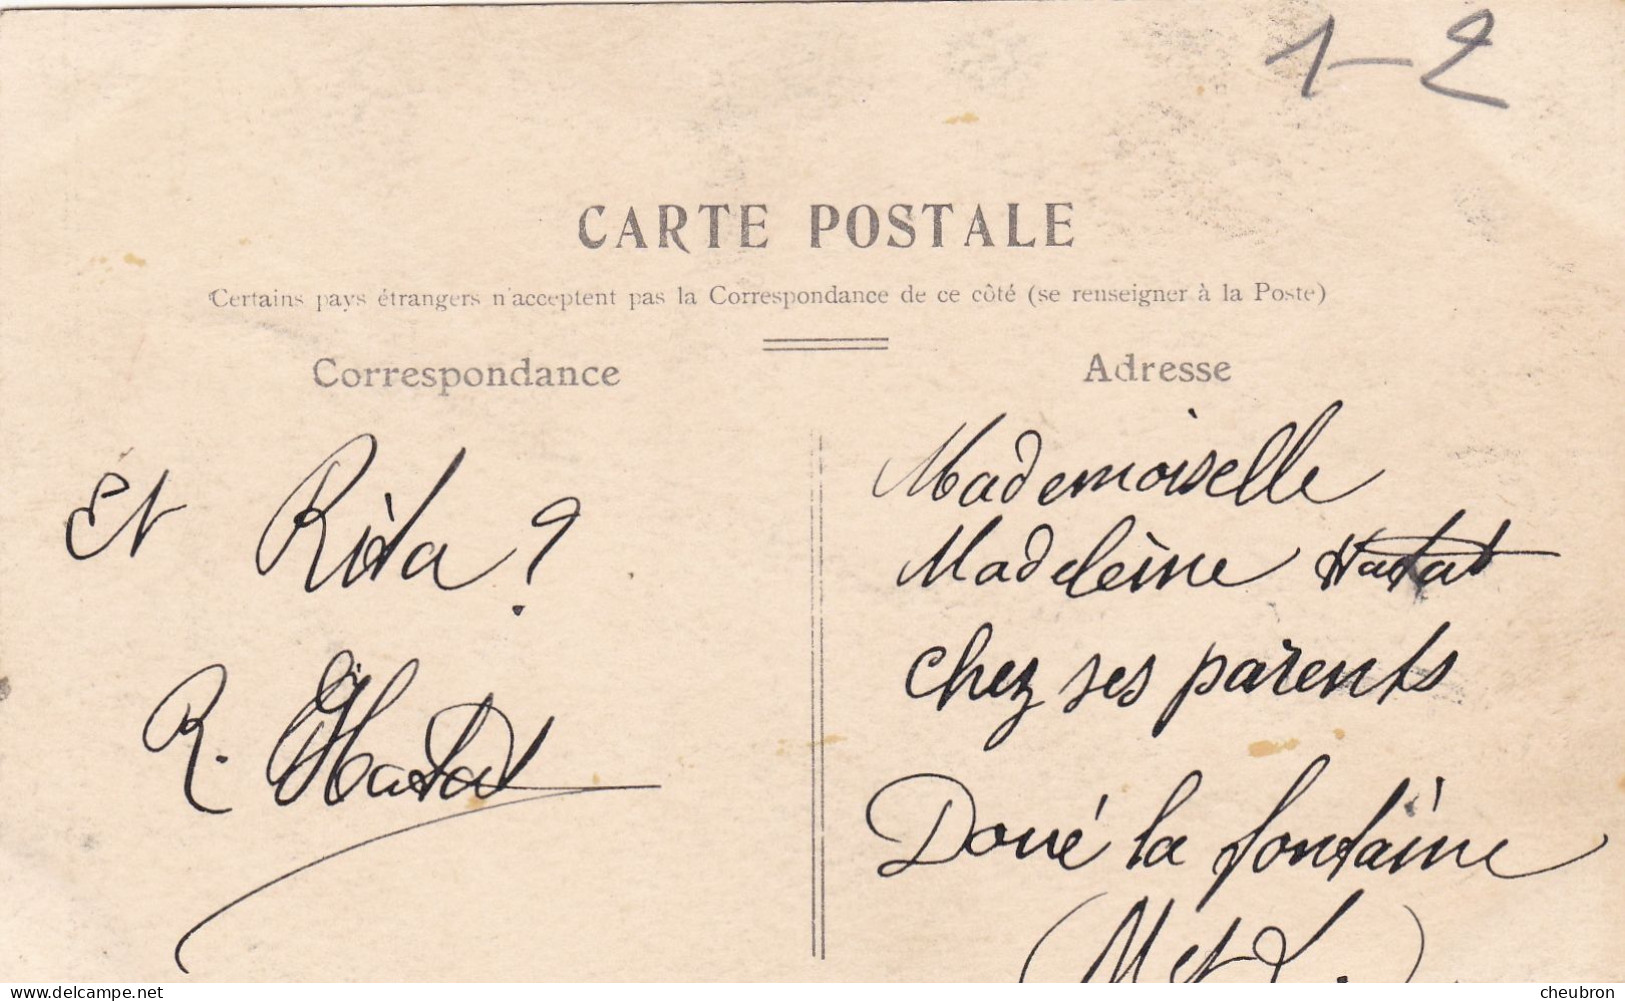 1-2
CARTE POSTALE
Certains pays étrangers n'acceptent pas la Correspondance de ce côté (se renseigner à la Poste)
Correspondance
Et Rita ?
R. Hatat
Adresse
Mademoiselle
Madeleine Hatat
chez ses parents
Doué la fontaine
(M et L.)
delcampe.net
cheubron